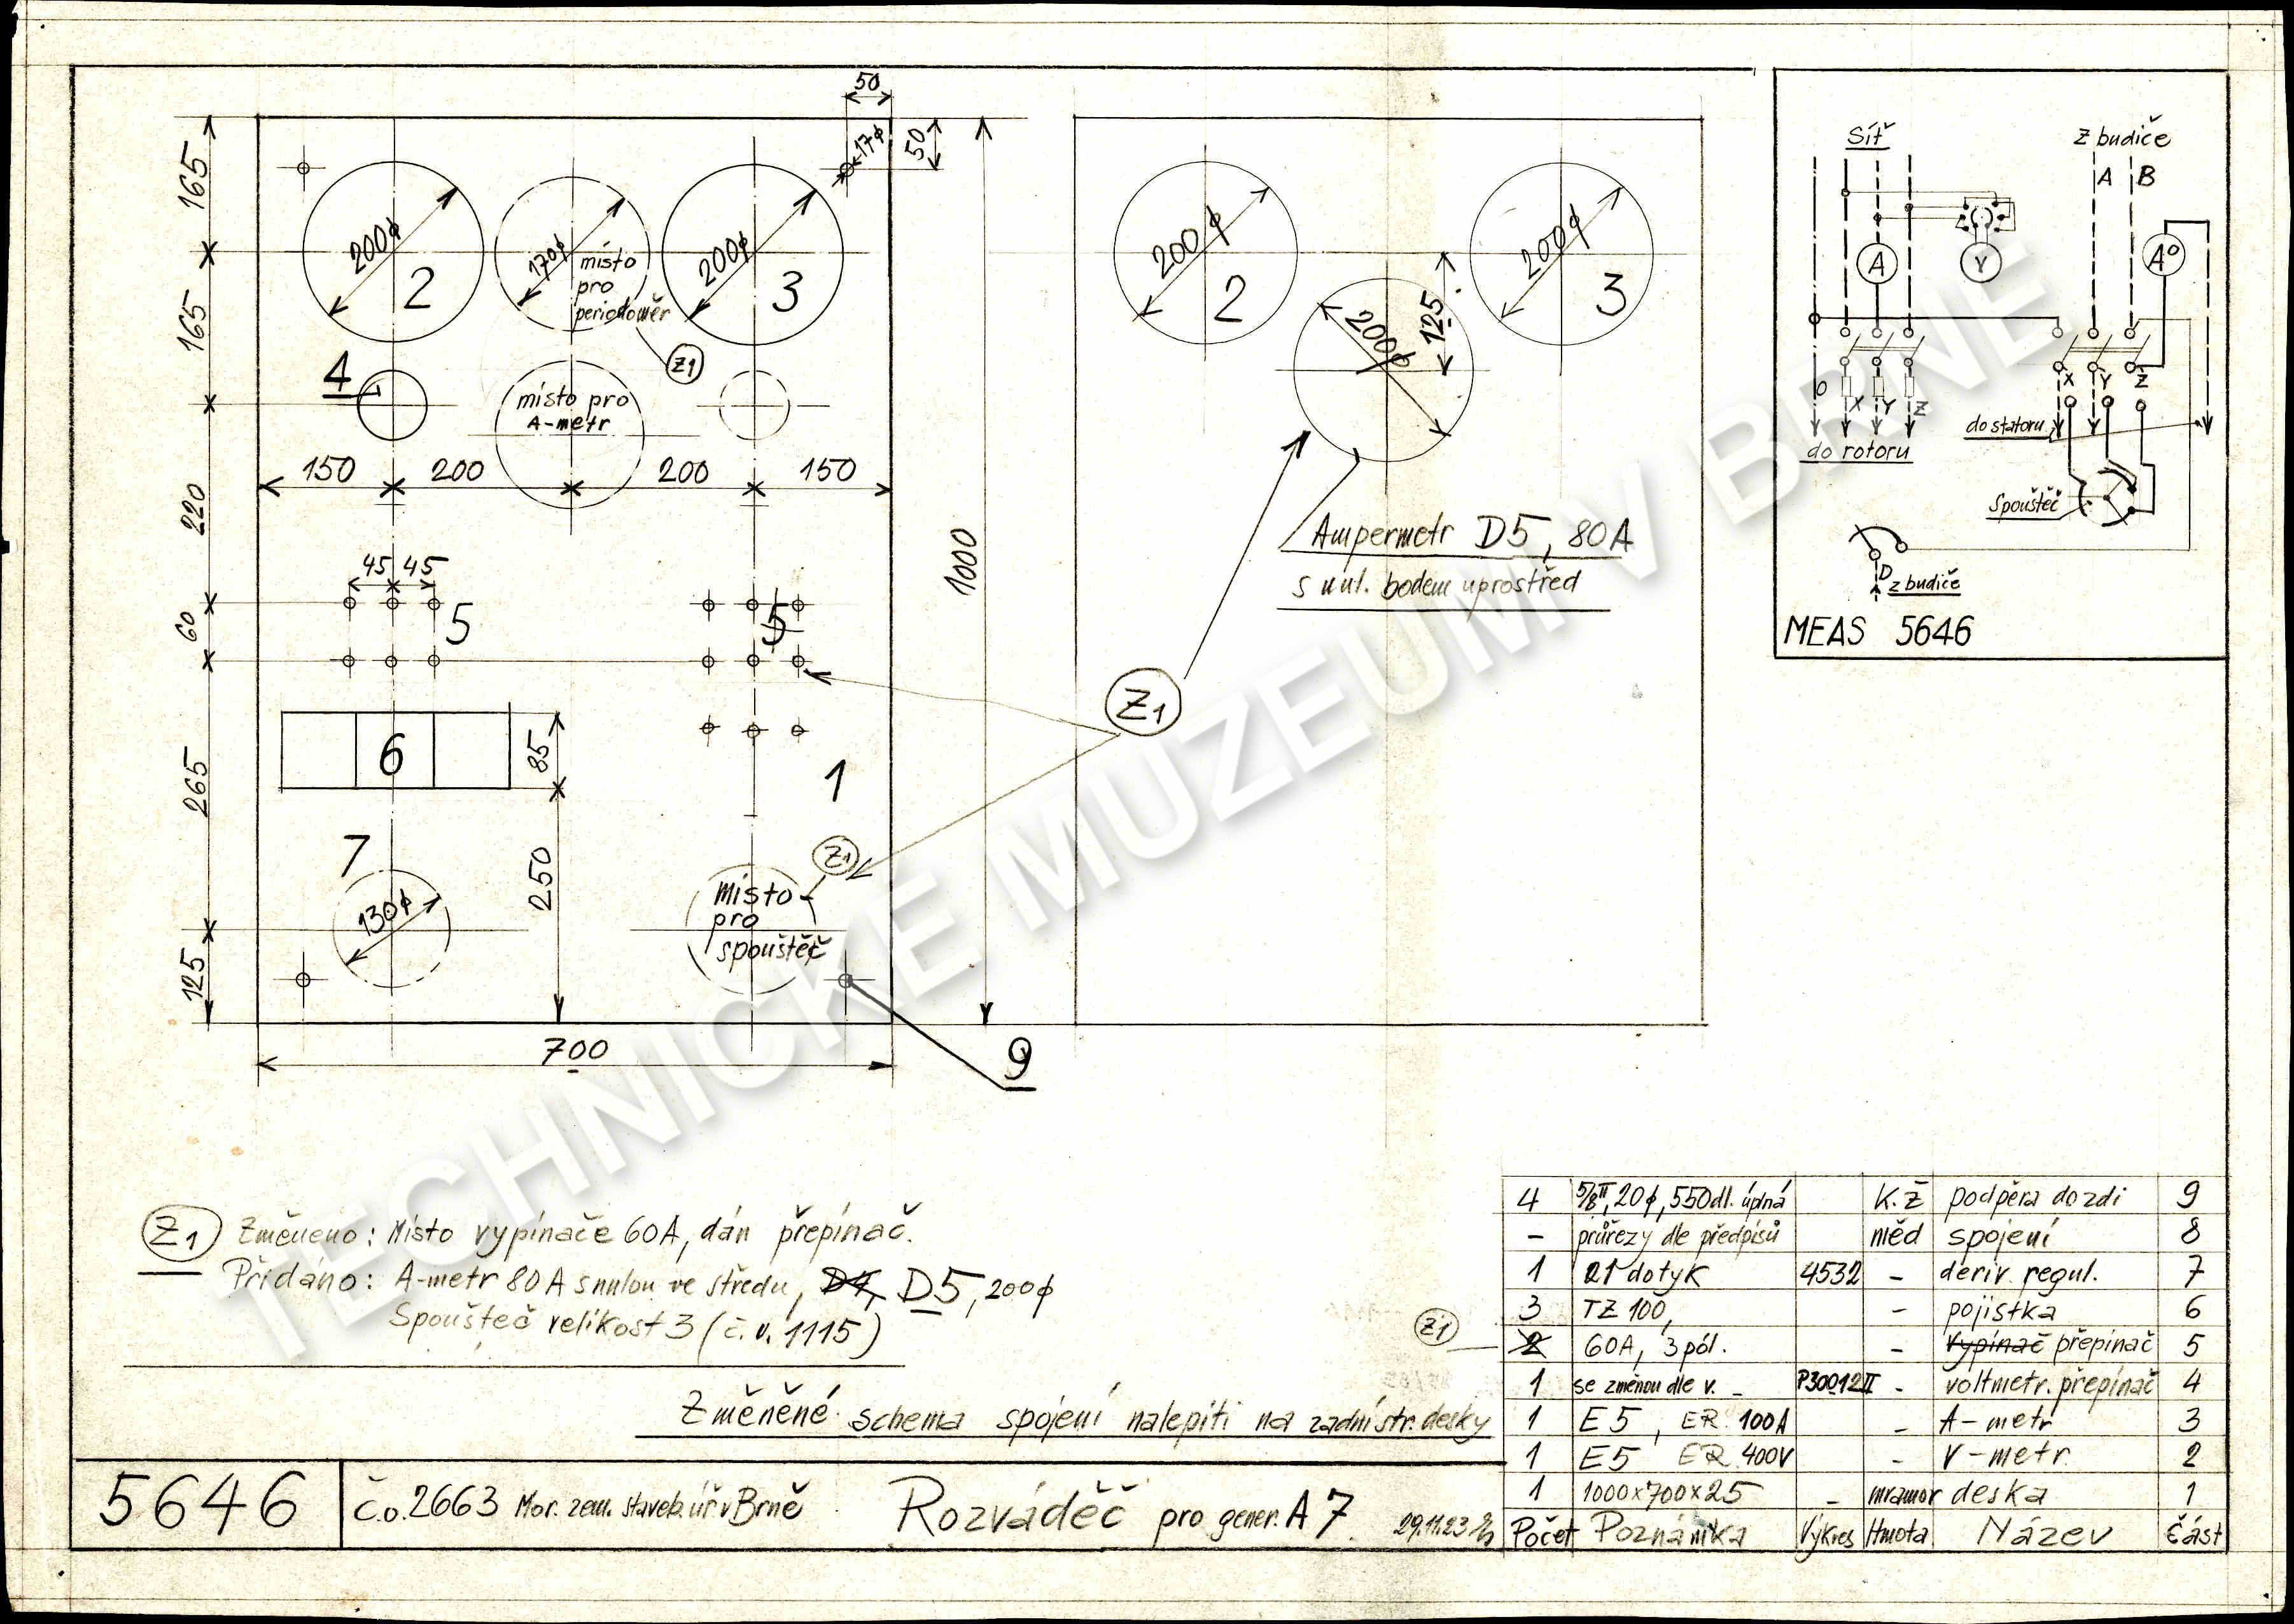 50
17φ
50
165
165
220
60
265
125
200φ
2
170φ
místo
pro
periodoměr
200φ
3
Z1
4
místo pro
A-metr
150 200 200 150
45 45
5
5
6
85
1
7
250
130φ
Z1
místo
pro
spouštěč
1000
700
9
200φ
2
200φ
125
200φ
3
Ampermetr D5, 80A
s nul. bodem uprostřed
Z1
Síť
z budiče
A B
A
V
A
O
X Y Z
do rotoru
X Y Z
do statoru
Spouštěč
D
z budiče
MEAS 5646
TECHNICKÉ MUZEUM V BRNĚ
Z1 Změneno: Místo vypínače 60A, dán přepínač.
Přidáno: A-metr 80A s nulou ve středu, D7, D5, 200φ
Spouštěč velikost 3 (č.v. 1115)
Změněné schema spojení nalepiti na zadní str. desky
4 5/8", 20φ, 550 dl. úplná K.Ž podpěra do zdi 9
– průřezy dle předpisů měd spojení 8
1 21 dotyk 4532 – deriv. regul. 7
3 TZ 100, – pojistka 6
Z1
2 60A, 3 pól. – vypínač přepínač 5
1 se změnou dle v. – P30012II - voltmetr. přepínač 4
1 E5, ER 100A – A-metr 3
1 E5 ER 400V – V-metr 2
1 1000×700×25 – mramor deska 1
Počet Poznámka Výkres Hmota Název Část
5646 č.o. 2663 Mor. zem. staveb. úř. v Brně Rozváděč pro gener. A7 29.11.23